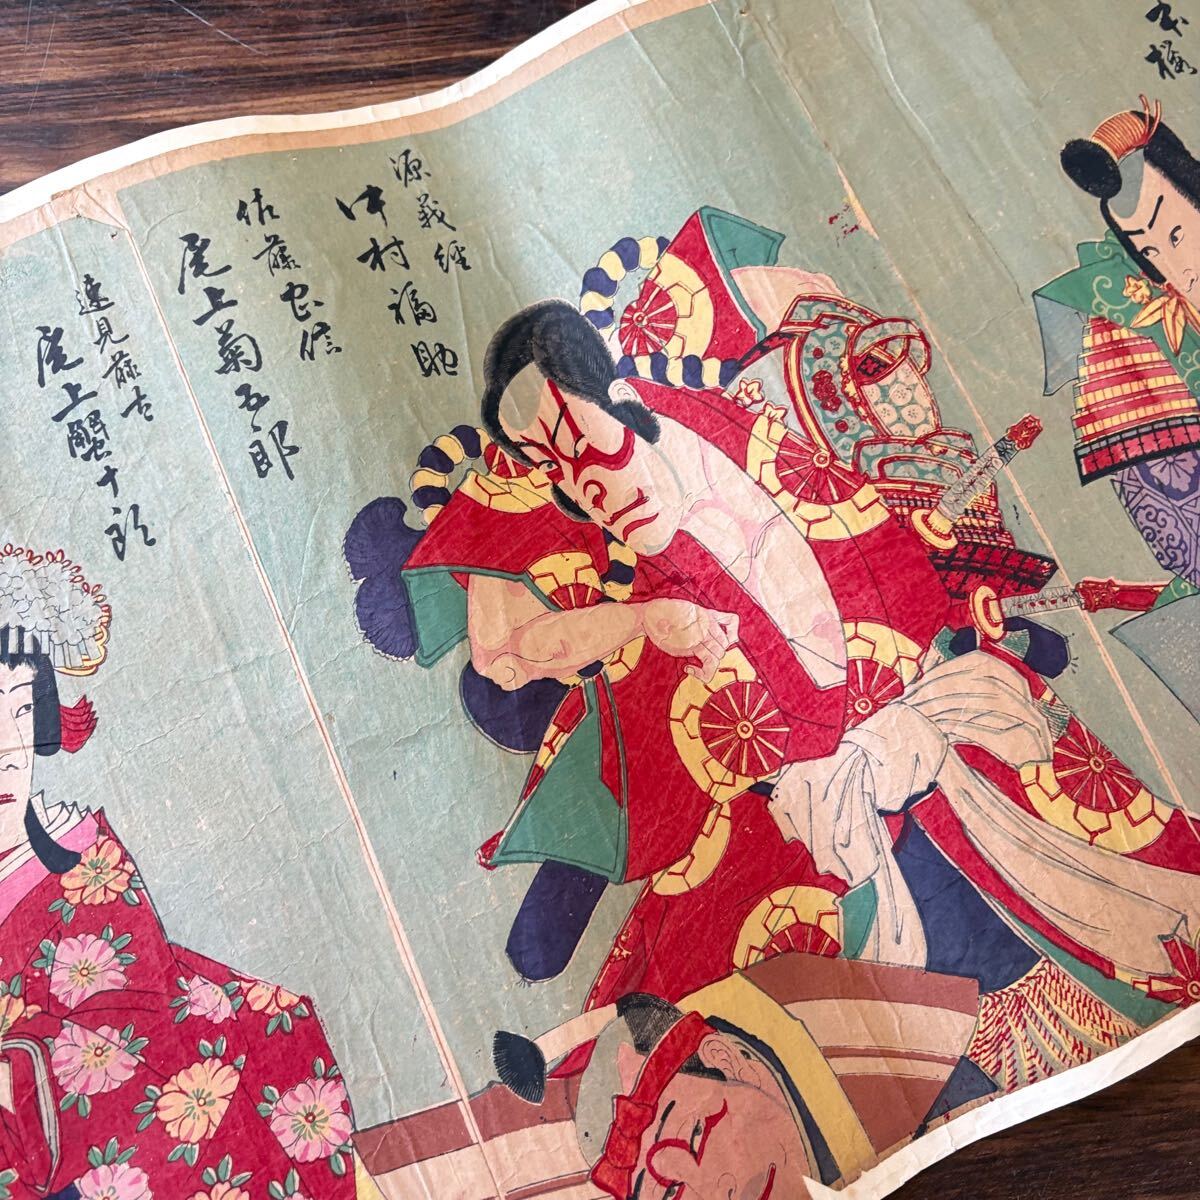 本桜
源義経
中村福助
佐藤忠信
尾上菊五郎
逸見藤太
尾上蟹十郎